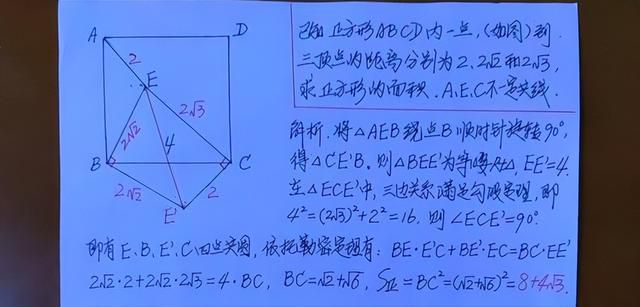 已知正方形ABCD内一点,(如图)到
三顶点的距离分别为2、2√2和2√3,
求正方形的面积.A、E、C不一定共线.
A
D
2
E
2√3
2√2
4
B
C
2√2
2
E'
解析:将△AEB绕点B顺时针旋转90°,
得△CE'B.则△BEE'为等腰Rt△,EE'=4.
在△ECE'中,三边关系满足勾股定理,即
4²=(2√3)²+2²=16.则∠ECE'=90°.
即有E、B、E'、C四点共圆,依托勒密定理有:BE·E'C+BE'·EC=BC·EE'
2√2·2+2√2·2√3=4·BC, BC=√2+√6, S正=BC²=(√2+√6)²=8+4√3.